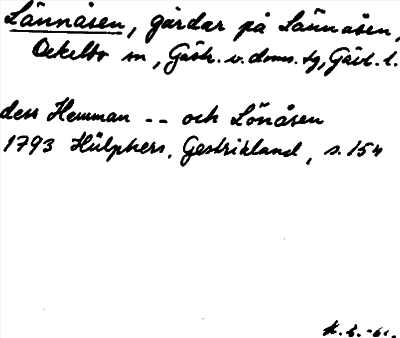 Lännåsen, gårdar på Lännåsen,
Ockelbo sn, Gästr. v. doms. tg, Gävl. l.
dess Hemman -- och Lönåsen
1793 Hülphers, Gestrikland, s. 154